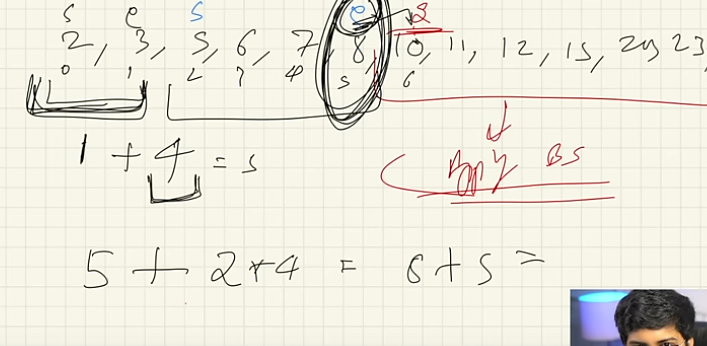 s e s e s
2, 3, 5, 6, 7, 8, 10, 11, 12, 15, 20, 23,
0 1 2 3 4 5 6
1 + 4 = 5
Apply BS
5 + 2*4 = 8+5 =